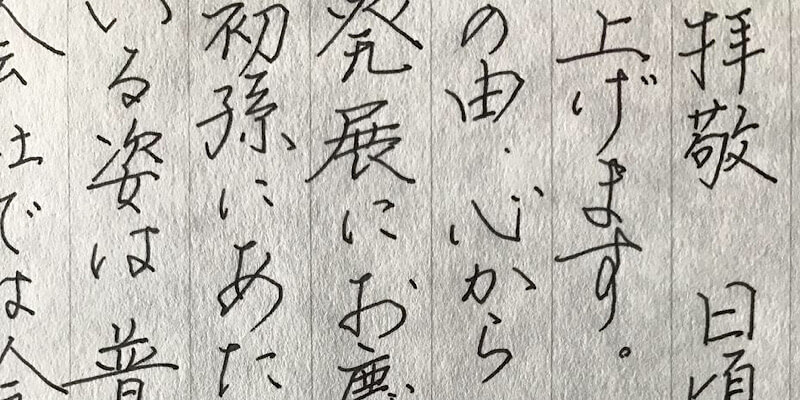 拝敬 日頃
上げます。
の由、心から
発展にお慶
初孫にあた
いる姿は
会社では